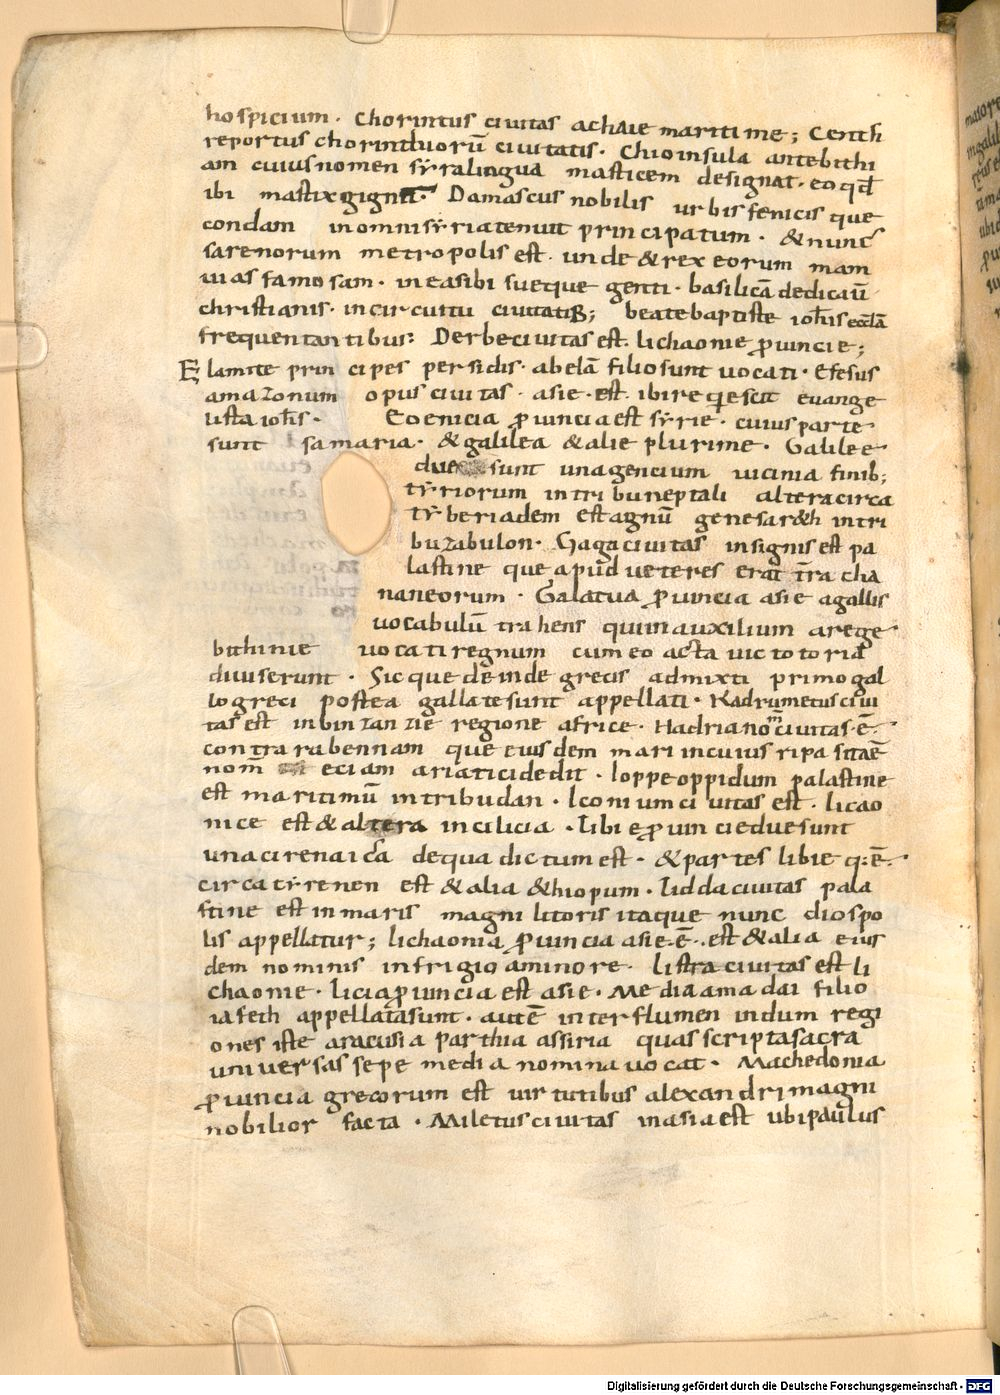 hospicium. Chorintus ciuitas achaie maritime; Cench
reportus chorinthiorū ciuitatis. Chio insula ante bithi
am cuius nomen sẏra lingua masticem designat. eo qđ
ibi mastix gignit. Damascus nobilis urbis fenicis que
condam in omni sẏria tenuit principatum. & nunc
sarenorum metropolis est. unde & rex eorum mam
uias famosam. in ea sibi sueque genti. basilicā dedicauī
christianis. in circuitu ciuitatis; beate baptiste ioħis ecclā
frequentantibus: Derbe ciuitas est. lichaonie ꝓuincie;
Elamite principes persidis. ab elā filio sunt uocati. Efesus
amazonum opus ciuitas. asie. est. ibi reqescit euange
lista ioħis. Eoenicia ꝓuincia est sẏrie. cuius parte
sunt samaria. & galilea & alie plurime. Galilee
due sunt una gencium uicinia finib;
tẏriorum in tribu neptali altera circa
tẏberiadem estagnū genesar&h in tri
bu zabulon. Gaga ciuitas insignis est pa
lastine que apud ueteres erat tr̄a cha
naneorum. Galatua ꝓuincia asie a gallis
uocabulū trahens qui in auxilium a rege
bithinie uocati regnum cum eo acta uictotoria
diuiserunt. Sicque deinde grecis admixti primo gal
logreci postea gallate sunt appellati. Kadrumetus ciui
tas est in binzanzie regione africe. Hadrianom̄ ciuitas. ē.
contra rabennam que eiusdem mari in cuius ripa sita ē
nom̄ eciam ariatici dedit. Ioppe oppidum palastine
est maritimū in tribu dan. Iconium ciuitas est. licao
nice est & altera in cilicia. Libie ꝓuincie due sunt
una cirenaica de qua dictum est. & partes libie q: ē.
circa tẏrenen est & alia &hiopum. Lidda ciuitas pala
stine est in maris magni litoris itaque nunc diospo
lis appellatur; lichaonia ꝓuincia asie. ē. est & alia eius
dem nominis in frigio aminore. listra ciuitas est li
chaonie. licia ꝓuincia est asie. Media a madai filio
iafeth appellata sunt. autē inter flumen indum regi
ones iste aracusia parthia assiria quas scriptasacra
uniuersas sepe media nomina uocat. Machedonia
ꝓuincia grecorum est uirtutibus alexandri magni
nobilior facta. Miletus ciuitas in asia est ubi paulus